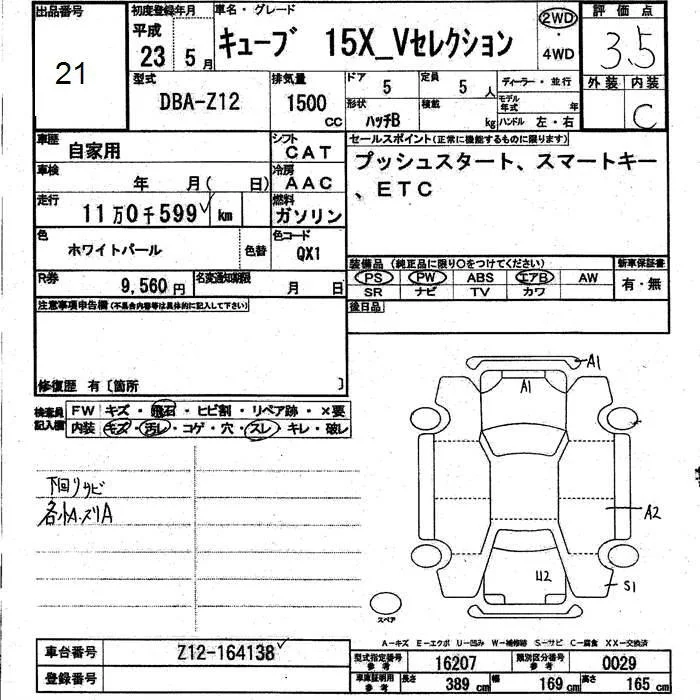 出品番号
21
初度登録年月
平成
23 5月
車名・グレード
キューブ 15X_Vセレクション
2WD
・
4WD
評価点
3.5
外装 内装
C
型式
DBA-Z12
排気量
1500
cc
ドア
5
定員
5 人
形状
ハッチB
積載
kg
ディーラー・並行
モデル年式 年
ハンドル 左・右
車歴
自家用
シフト
CAT
車検
年 月( 日)
冷房
AAC
走行
11万0千599 km
燃料
ガソリン
色
ホワイトパール
色替
色コード
QX1
R券
9,560円
名変通知期限
月 日
セールスポイント(正常に機能するものに限ります)
プッシュスタート、スマートキー
、ETC
装備品(純正品に限り○をつけてください)
新車保証書
PS PW ABS エアB AW
SR ナビ TV カワ
有・無
後日品
注意事項申告欄(不具合内容等は具体的に記入して下さい)
修復歴 有〔箇所 〕
検査員記入欄
FW キズ・飛石・ヒビ割・リペア跡・×要
内装 キズ・汚レ・コゲ・穴・スレ・キレ・破レ
下回りサビ
各小A.スリA
A1
A1
A2
U2
S1
スペア
A-キズ E-エクボ U-凹み W-補修跡 S-サビ C-腐食 XX-交換済
車台番号
Z12-164138
登録番号
型式指定番号参考
16207
類別区分番号参考
0029
車庫証明用参考
長さ 389 cm
幅 169 cm
高さ 165 cm